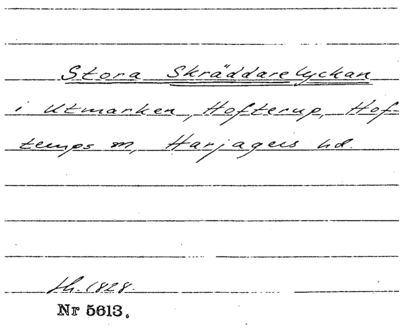 Stora Skräddarelyckan
i Utmarken, Hofterup, Hof-
terups sn, Harjagers hd.
sh. 1828.
Nr 5613.